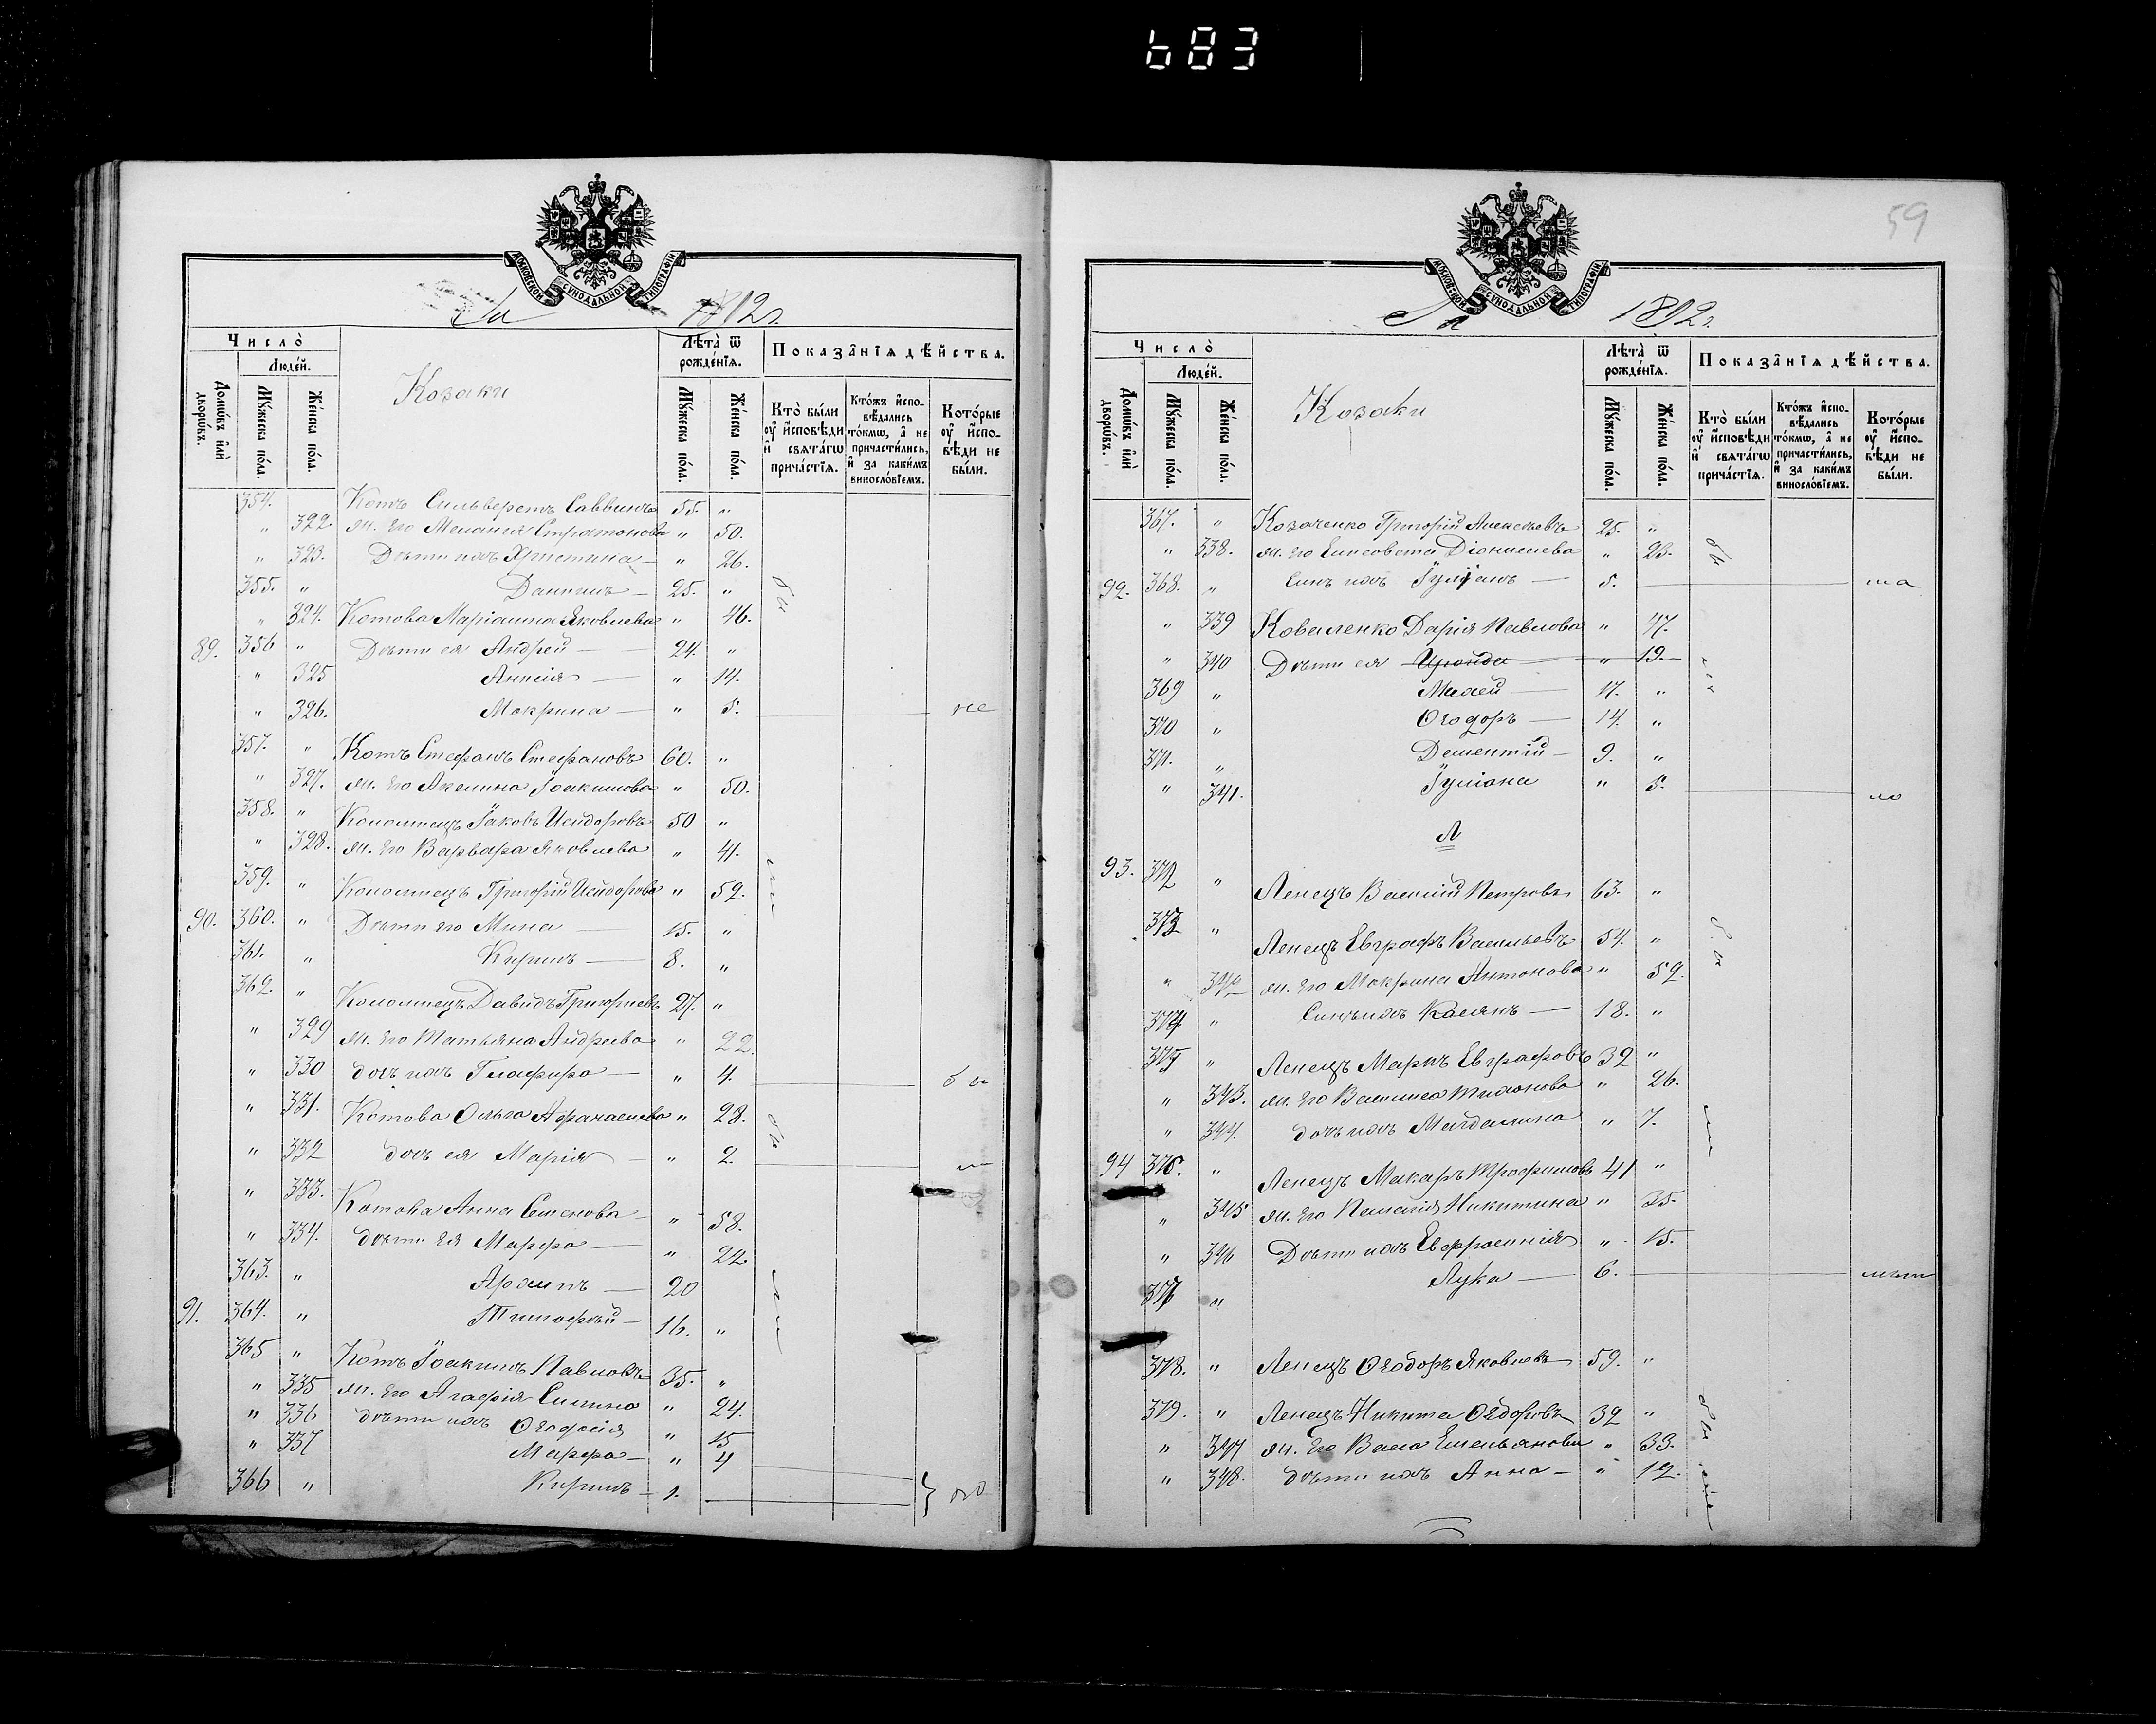 683
МОСКОВСКОЙ СѴНОДАЛЬНОЙ ТИПОГРАФІИ
За 1812г.
Число̀
Люде́й.
Домѡ́въ и҆лѝ дворѡ́въ.
Мꙋ́жеска по́ла.
Же́нска по́ла.
Козаки
Лѣ́та ѿ рожде́нїѧ.
Мꙋ́жеска по́ла.
Же́нска по́ла.
Показа̂нїѧ дѣ́йства.
Кто̀ бы́ли оу҆ и҆сповѣди и҆ свѧта́гѡ прича́стїѧ.
Кто́жъ и҆спо-вѣдались то́кмѡ, а҆ не причасти́лись, и҆ за каки́мъ виносло́вїемъ.
Кото́рые оу҆ и҆спо-вѣди не бы́ли.
354. Котъ Сильверстъ Саввинъ 55. "
" 322. ж. его Меланія Стратонова " 50.
" 323. Дѣти ихъ Христина — " 26.
355. " Даніилъ — 25. "
" 324. Котова Маріанна Яковлева " 46.
89. 356 " Дѣти ея Андрей — 24. "
" 325 Аннія — " 14.
" 326. Мокрина — " 5. не
357. " Котъ Стефанъ Стефановъ 60. "
" 327. ж. его Акилина Іоакимова " 50.
358. " Коломіецъ Іаковъ Исидоровъ 50 "
" 328. ж. его Варвара Яковлева " 41.
359. " Коломіецъ Григорій Исидоровъ " 52.
90. 360. " Дѣти его Мина — 15. "
361. " Кирилъ — 8. "
362. " Коломіецъ Давидъ Григоріевъ 27. "
" 329 ж. его Татьяна Андреева " 22.
" 330 дочь ихъ Глафира — " 4. бы
" 331. Котова Ольга Афанасіева " 28.
" 332 дочь ея Марія — " 2. ли
" 333. Котова Анна Семенова — " 58.
" 334. дѣти ея Марфа — " 22
363. " Архипъ — 20
91. 364. " Тимофей — 16. "
365 " Котъ Іоакимъ Павловъ 35. "
" 335 ж. его Агафія Силина " 24.
" 336 дѣти ихъ Ѳеодосія " 15
" 337 Марфа — " 4
366 " Кирилъ — 1. } по
59
МОСКОВСКОЙ СѴНОДАЛЬНОЙ ТИПОГРАФІИ
За 1812г.
Число̀
Люде́й.
Домѡ́въ и҆лѝ дворѡ́въ.
Мꙋ́жеска по́ла.
Же́нска по́ла.
Козаки
Лѣ́та ѿ рожде́нїѧ.
Мꙋ́жеска по́ла.
Же́нска по́ла.
Показа̂нїѧ дѣ́йства.
Кто̀ бы́ли оу҆ и҆сповѣди и҆ свѧта́гѡ прича́стїѧ.
Кто́жъ и҆спо-вѣдались то́кмѡ, а҆ не причасти́лись, и҆ за каки́мъ виносло́вїемъ.
Кото́рые оу҆ и҆спо-вѣди не бы́ли.
367. " Козаченко Григорій Алексѣевъ 25. "
" 338. ж. его Елисавета Діонисіева " 23.
92. 368. " Сынъ ихъ Іуліанъ — 5. ма
" 339 Коваленко Дарія Павлова " 47.
" 340 Дѣти ея Ираида " 19.
369 " 17. "
370 " Ѳеодоръ — 14. "
371. " Дементій — 9. "
" 341. Іуліана " 5. ло
Л
93. 372 " Ленецъ Василій Петровъ 63. "
373 " Ленецъ Евграфъ Васильевъ 54. "
" 342 ж. его Мокрина Антонова " 52.
374 " Сынъ ихъ Касіянъ — 18. "
375 " Ленецъ Маркъ Евграфовъ 32 "
" 343. ж. его Василиса " 26.
" 344. дочь ихъ Магдалина " 7.
94 376. " Ленецъ Макаръ Трофимовъ 41 "
" 345 ж. его Пелагія Никитина " 35.
" 346 Дѣти ихъ Евфросинія " 15.
377 " Лука — 6. лѣт
378. " Ленецъ Ѳеодоръ Яковлевъ 59. "
379. " Ленецъ Никита Ѳедоровъ 32 "
" 347 ж. его Васса Емельянова " 33.
" 348. дѣти ихъ Анна — " 12.